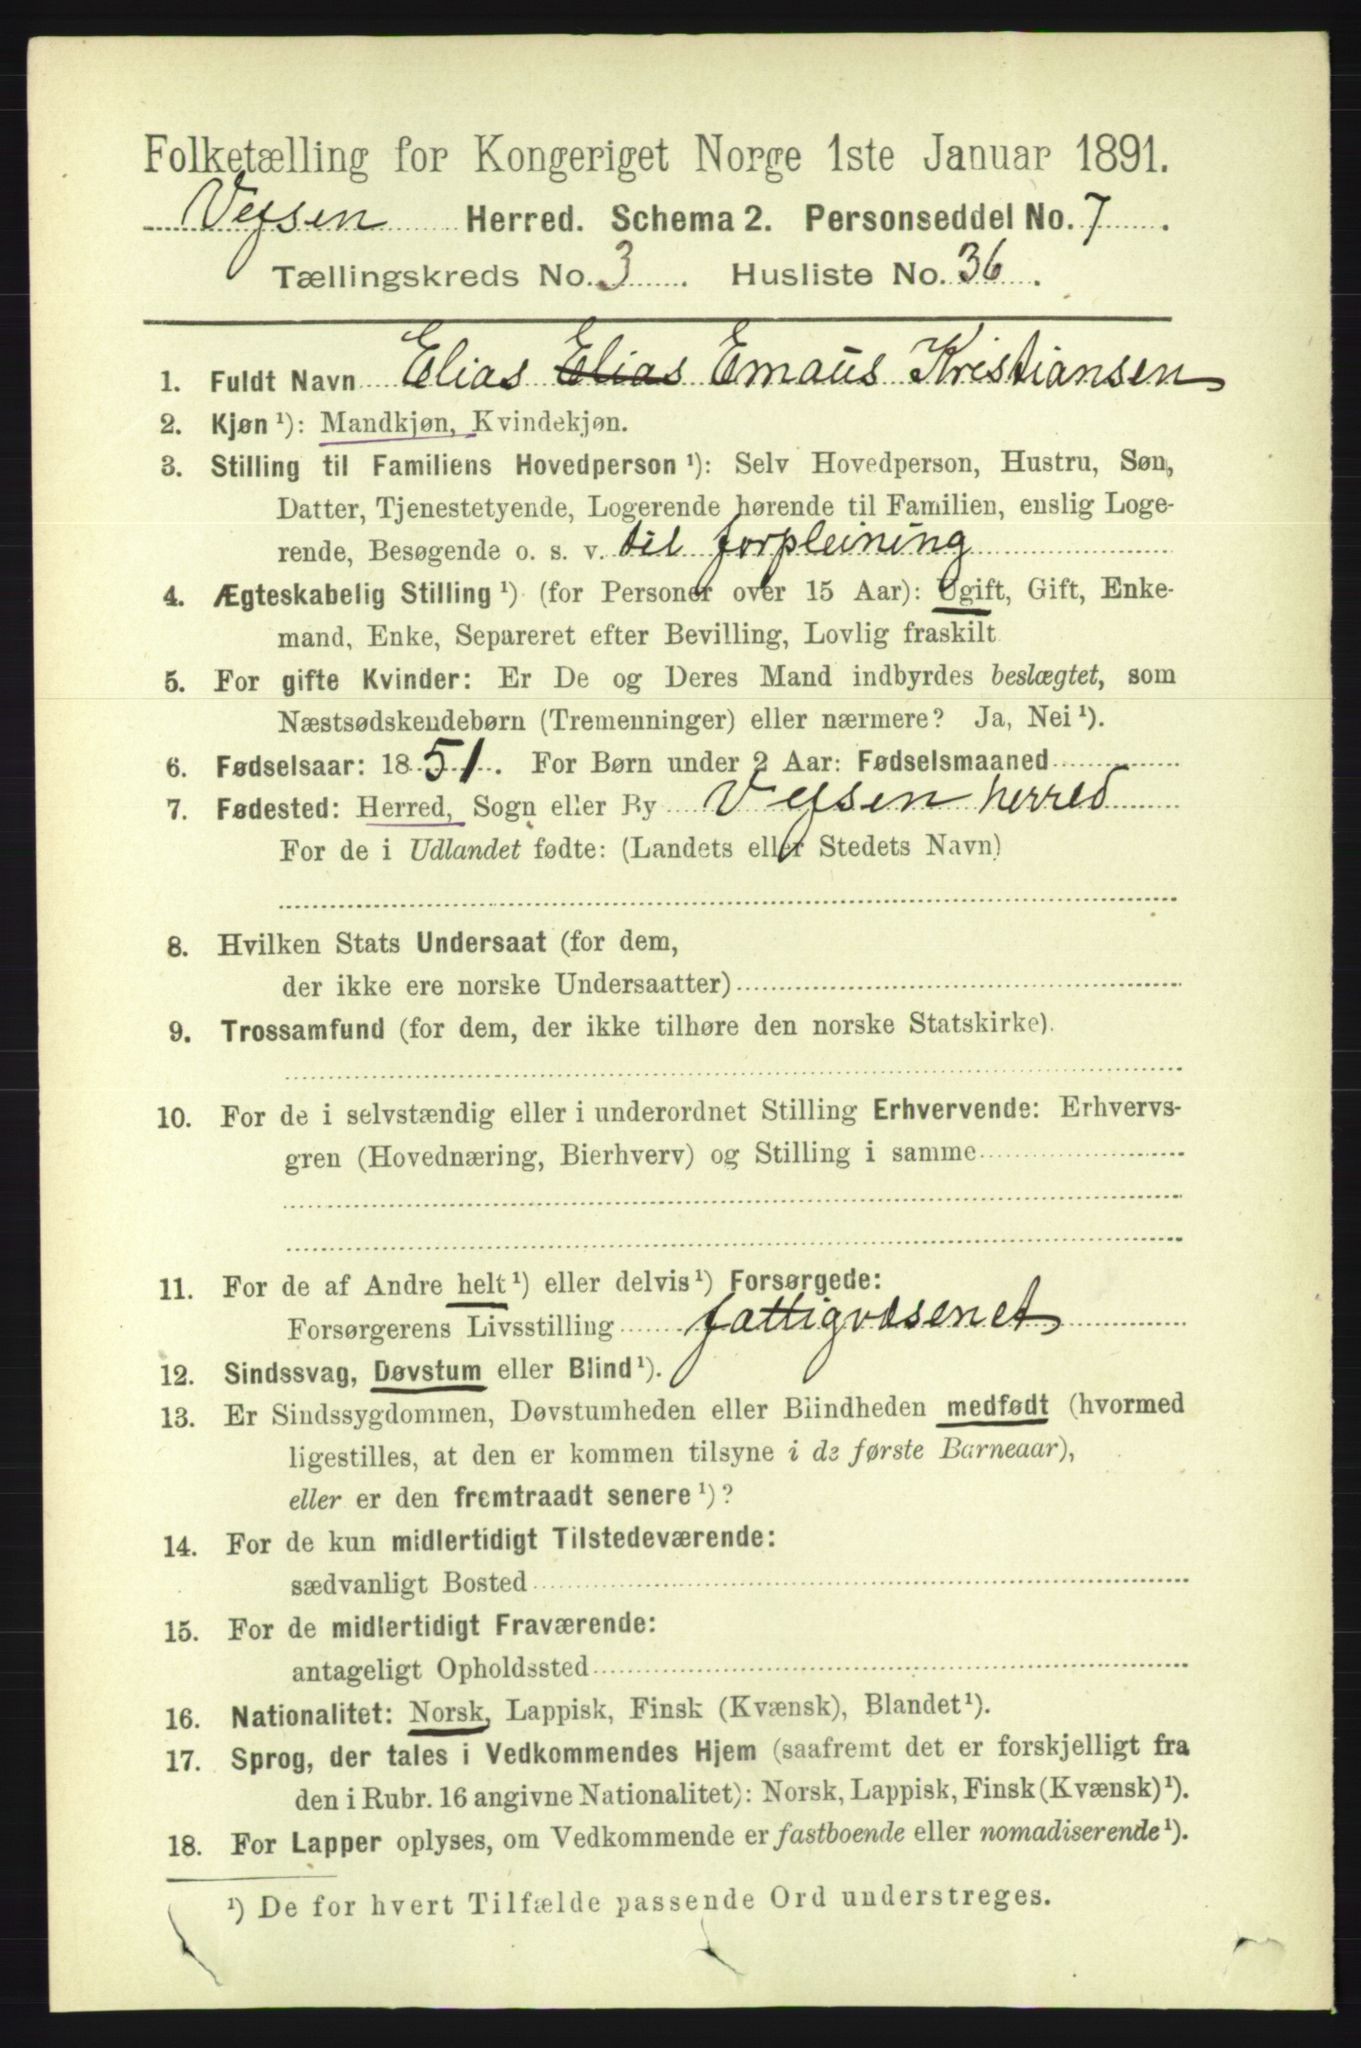 Folketælling for Kongeriget Norge 1ste Januar 1891.
Vefsen Herred. Schema 2. Personseddel No. 7.
Tællingskreds No. 3. Husliste No. 36.
1. Fuldt Navn Elias Elias Emaüs Kristiansen
2. Kjøn ¹): Mandkjøn, Kvindekjøn.
3. Stilling til Familiens Hovedperson ¹): Selv Hovedperson, Hustru, Søn,
Datter, Tjenestetyende, Logerende hørende til Familien, enslig Loge-
rende, Besøgende o. s. v. til forpleining
4. Ægteskabelig Stilling ¹) (for Personer over 15 Aar): Ugift, Gift, Enke-
mand, Enke, Separeret efter Bevilling, Lovlig fraskilt
5. For gifte Kvinder: Er De og Deres Mand indbyrdes beslægtet, som
Næstsødskendebørn (Tremenninger) eller nærmere? Ja, Nei ¹).
6. Fødselsaar: 1851. For Børn under 2 Aar: Fødselsmaaned
7. Fødested: Herred, Sogn eller By Vefsen herred
For de i Udlandet fødte: (Landets eller Stedets Navn)
8. Hvilken Stats Undersaat (for dem,
der ikke ere norske Undersaatter)
9. Trossamfund (for dem, der ikke tilhøre den norske Statskirke).
10. For de i selvstændig eller i underordnet Stilling Erhvervende: Erhvervs-
gren (Hovednæring, Bierhverv) og Stilling i samme
11. For de af Andre helt ¹) eller delvis ¹) Forsørgede:
Forsørgerens Livsstilling fattigvæsenet
12. Sindssvag, Døvstum eller Blind ¹).
13. Er Sindssygdommen, Døvstumheden eller Blindheden medfødt (hvormed
ligestilles, at den er kommen tilsyne i de første Barneaar),
eller er den fremtraadt senere ¹)?
14. For de kun midlertidigt Tilstedeværende:
sædvanligt Bosted
15. For de midlertidigt Fraværende:
antageligt Opholdssted
16. Nationalitet: Norsk, Lappisk, Finsk (Kvænsk), Blandet ¹).
17. Sprog, der tales i Vedkommendes Hjem (saafremt det er forskjelligt fra
den i Rubr. 16 angivne Nationalitet): Norsk, Lappisk, Finsk (Kvænsk) ¹).
18. For Lapper oplyses, om Vedkommende er fastboende eller nomadiserende ¹).
¹) De for hvert Tilfælde passende Ord understreges.